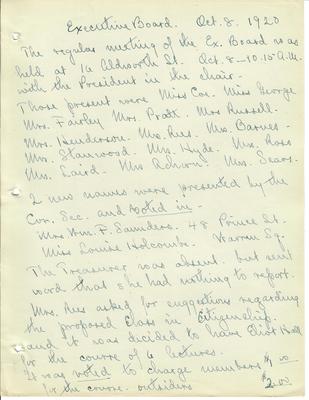 Executive Board. Oct. 8. 1920
The regular meeting of the Ex. Board was
held at 16 Aldworth St. Oct. 8 - 10.15 A.M.
with the President in the chair -
Those present were Miss Coe. Miss George
Mrs. Fairley Mrs. Pratt. Mrs Russell.
Mrs. Henderson. Mrs. Rees. Mrs. Barnes -
Mrs. Stanwood. Mrs. Hyde. Mrs. Ross
Mrs. Laird. Mrs. Mrs. Sears.
2 new names were presented by the
Cor. Sec. and voted in -
Mrs Wm. P. Saunders. 48 Prince St.
Miss Louise Holcombe. Warren Sq.
The Treasurer was absent. but sent
word that she had nothing to report.
Mrs. Rees asked for suggestions regarding
the proposed class in Citizenship.
and it was decided to have Eliot Hall
for the course of 6 lectures.
It was voted to charge members $1.00
for the course. outsiders $2.00